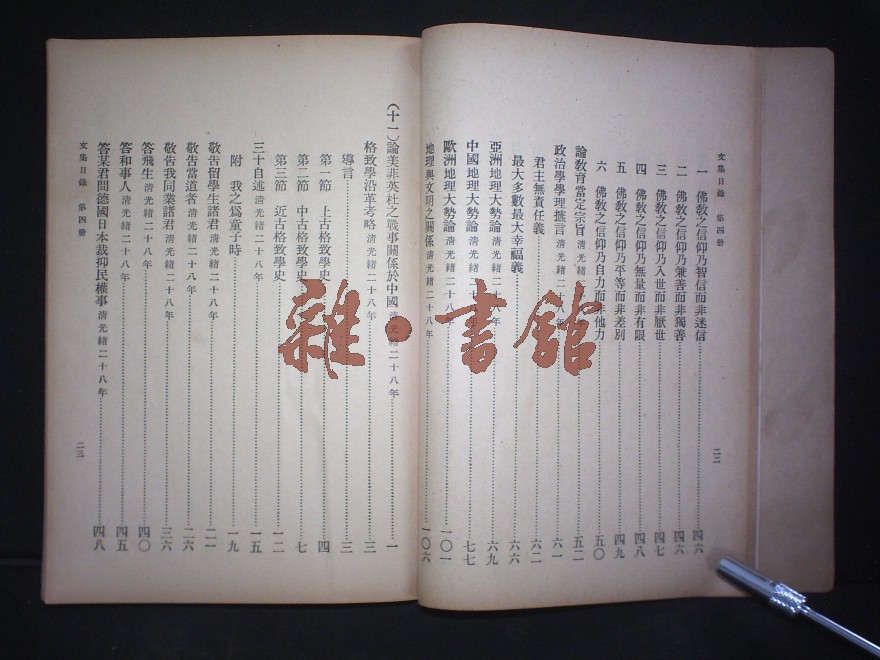 文集目錄 第四册
一 佛教之信仰乃智信而非迷信 四六
二 佛教之信仰乃兼善而非獨善 四六
三 佛教之信仰乃入世而非厭世 四七
四 佛教之信仰乃無量而非有限 四八
五 佛教之信仰乃平等而非差別 四九
六 佛教之信仰乃自力而非他力 五〇
論教育當定宗旨 清光緒二十八年 五二
政治學學理摭言 清光緒二十八年 六一
君主無責任義 六二
最大多數最大幸福義 六六
亞洲地理大勢論 清光緒二十八年 六九
中國地理大勢論 清光緒二十八年 七七
歐洲地理大勢論 清光緒二十八年 一〇一
地理與文明之關係 清光緒二十八年 一〇六
二二
(十一)論美菲英杜之戰事關係於中國 清光緒二十八年 一
格致學沿革考略 清光緒二十八年 三
導言 三
第一節 上古格致學史 四
第二節 中古格致學史 七
第三節 近古格致學史 一二
三十自述 清光緒二十八年 一五
附 我之爲童子時 一九
敬告留學生諸君 清光緒二十八年 二一
敬告當道者 清光緒二十八年 二六
敬告我同業諸君 清光緒二十八年 三六
答飛生 清光緒二十八年 四〇
答和事人 清光緒二十八年 四五
答某君問德國日本裁抑民權事 清光緒二十八年 四八
文集目錄 第四册
二三
雜·書館